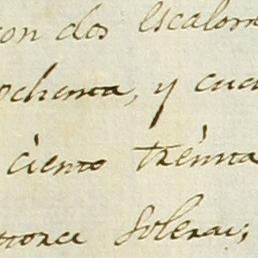 con dos escalon
ochenta, y cua
ciento treinta
torce Soleras;